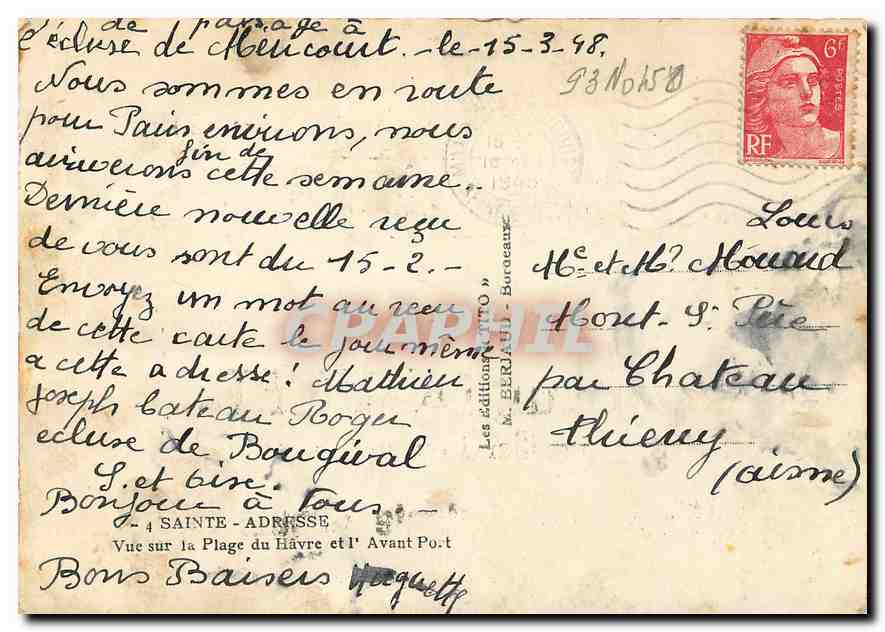 de passage à
l'écluse de Méricourt. -le-15-3-48.
Nous sommes en route
pour Paris environs, nous
arriverons fin de cette semaine..
Dernière nouvelle reçu
de vous sont du 15-2.-
Envoyez un mot au reçu
de cette carte le jour même
a cette adresse! Mathieu
Joseph bateau Roger
écluse de Bougival
S. et Oise.
Bonjour à Tous -
4 SAINTE - ADRESSE
Vue sur la Plage du Hâvre et l' Avant Port
Bons Baisers Huguette
Les Editions "TITO"
M. BERJAUD - Bordeaux
93 No 458
6F
POSTES
RF
1948
Louis
Me et Mr Mouard
Mont-St Père
par Chateau
thierry
(aisne)
CPAPHIL